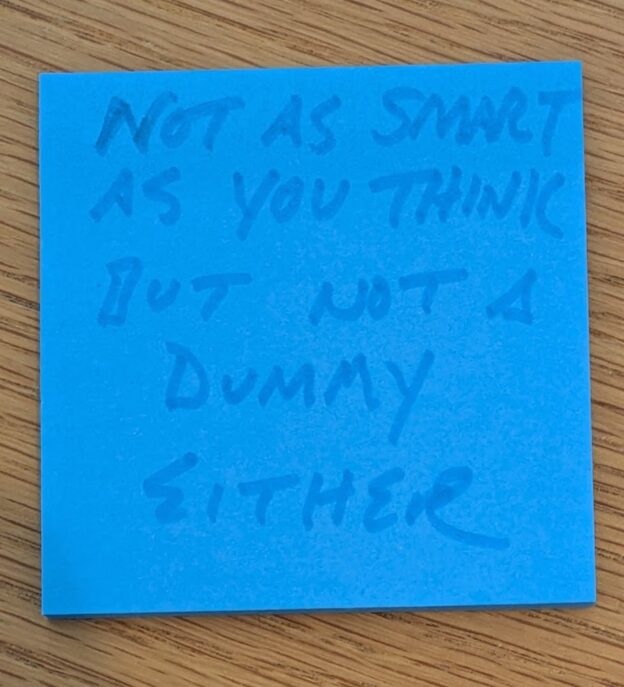 NOT AS SMART
AS YOU THINK
BUT NOT A
DUMMY
EITHER